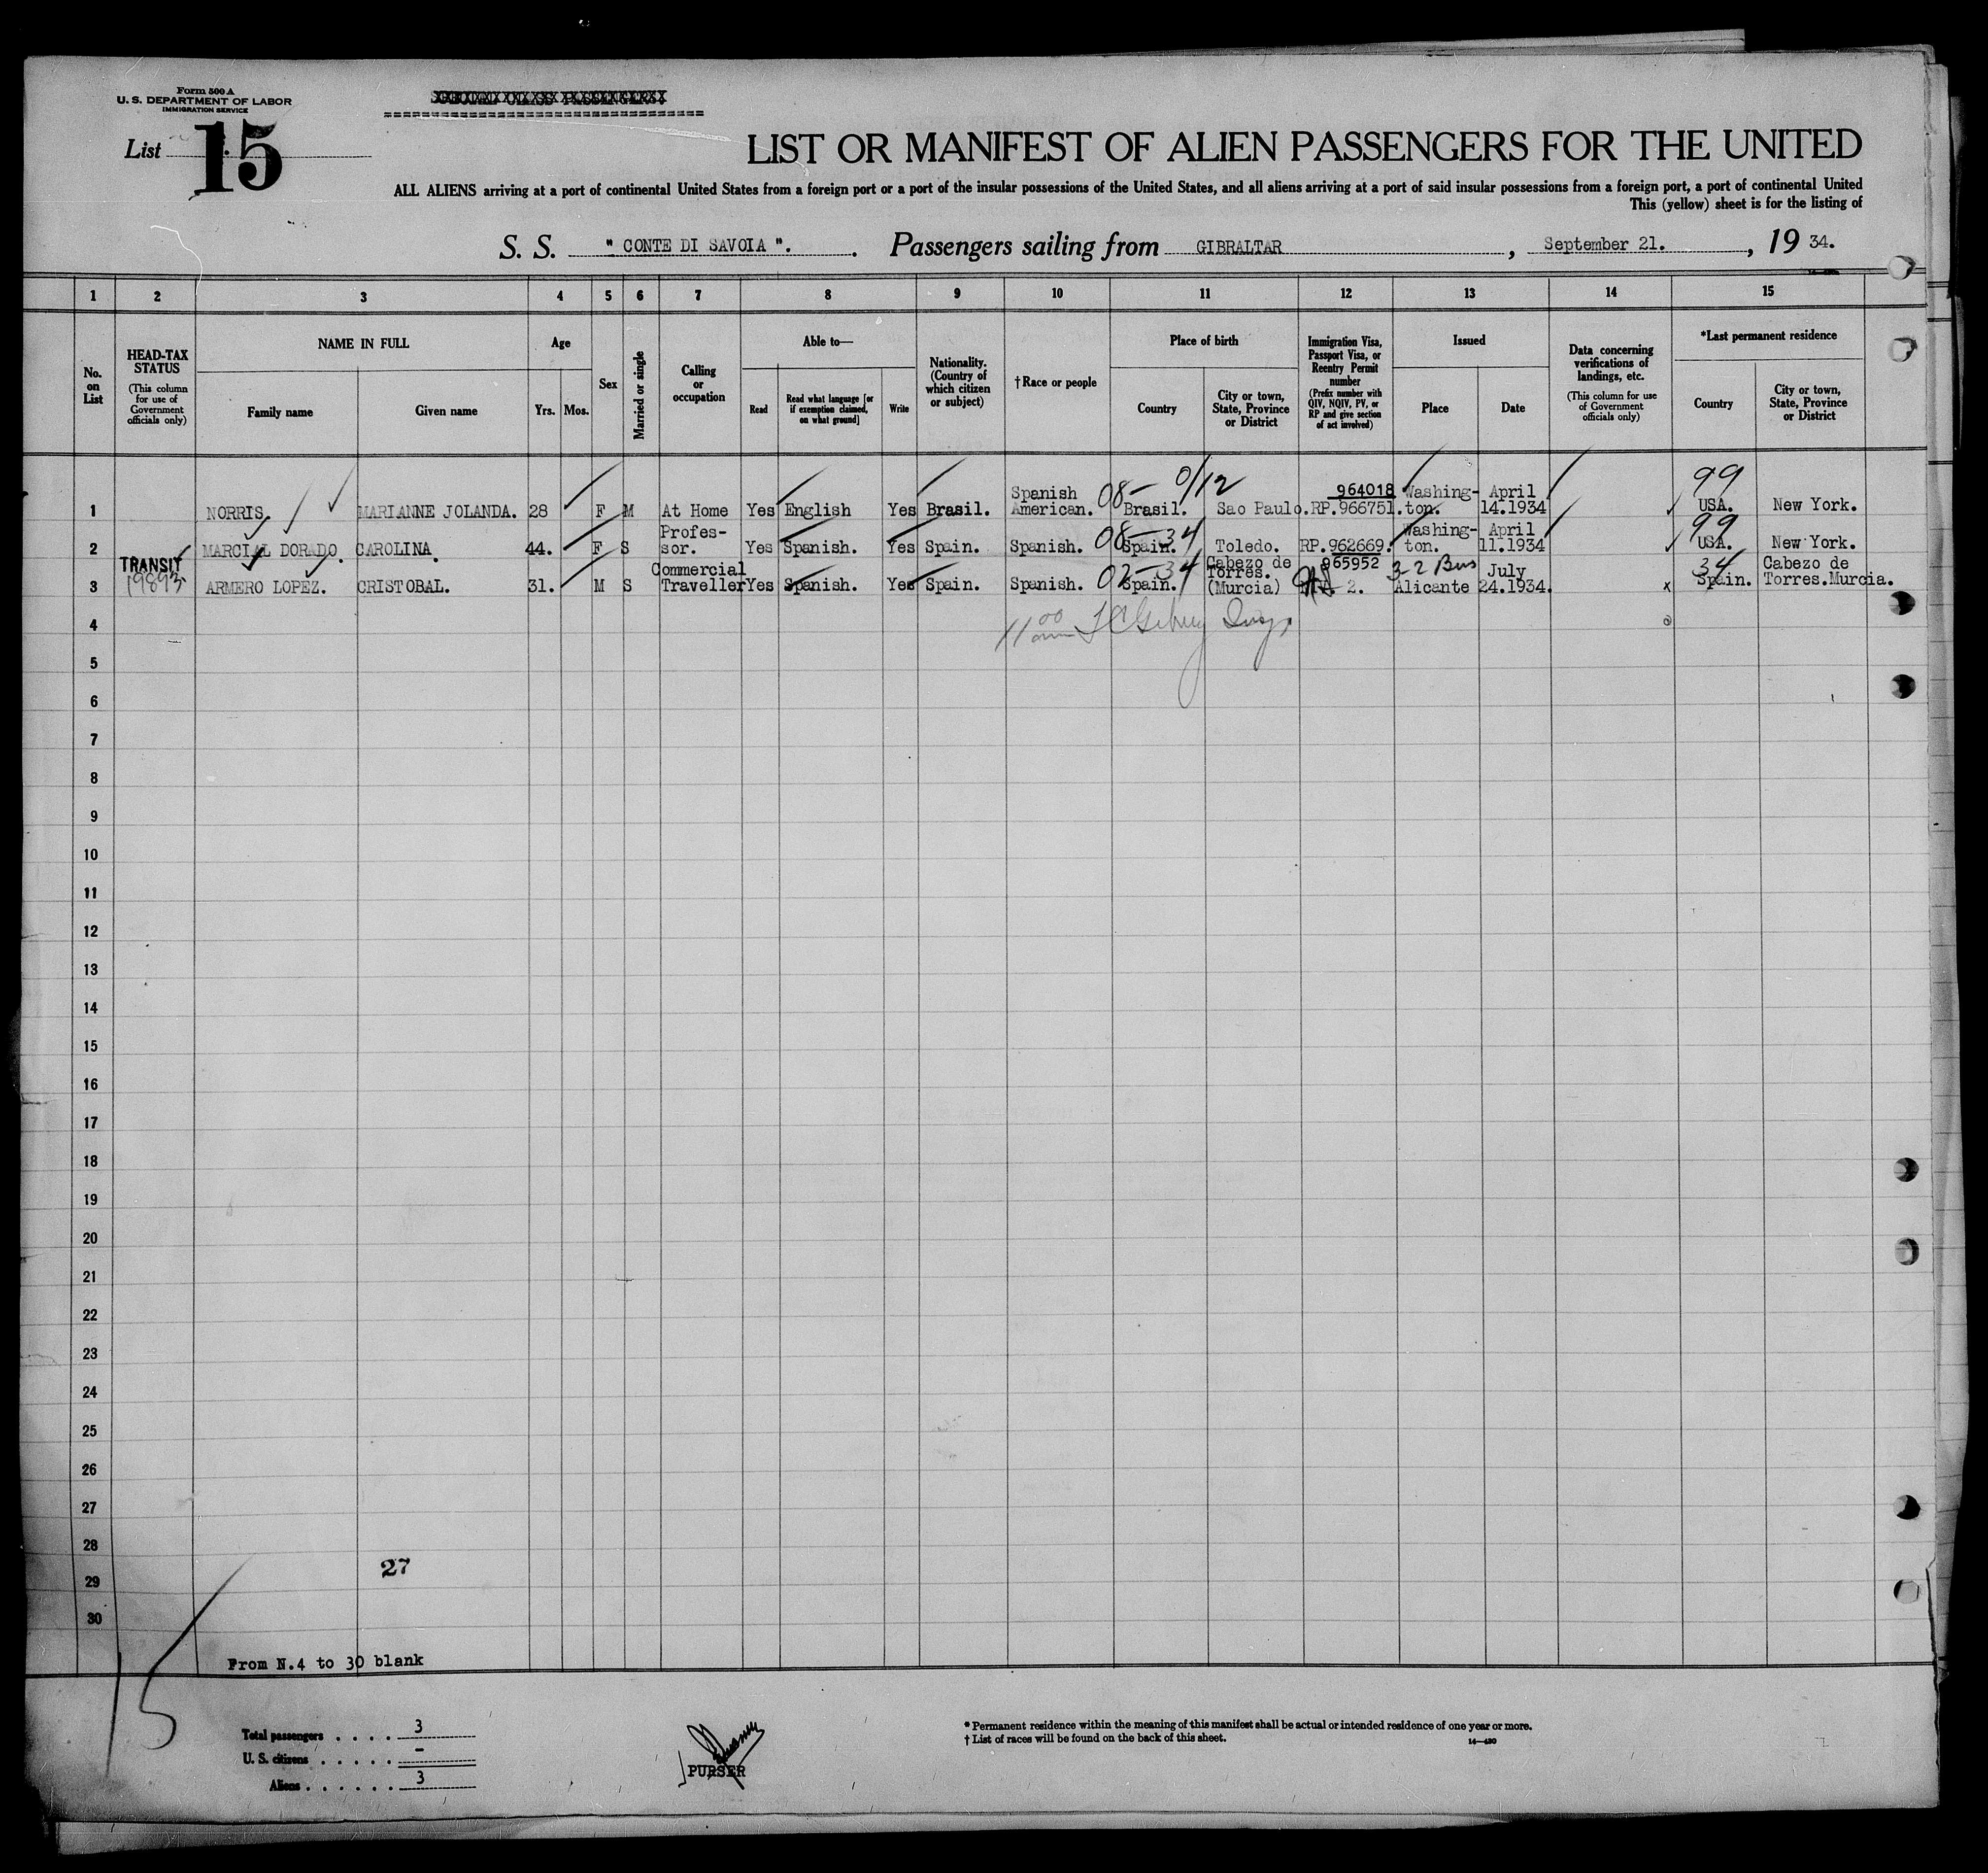 Form 500 A
U. S. DEPARTMENT OF LABOR
IMMIGRATION SERVICE
List 15
LIST OR MANIFEST OF ALIEN PASSENGERS FOR THE UNITED
ALL ALIENS arriving at a port of continental United States from a foreign port or a port of the insular possessions of the United States, and all aliens arriving at a port of said insular possessions from a foreign port, a port of continental United
This (yellow) sheet is for the listing of
S. S. " CONTE DI SAVOIA ". Passengers sailing from GIBRALTAR , September 21. , 19 34.
1 2 3 4 5 6 7 8 9 10 11 12 13 14 15
No. on List
HEAD-TAX STATUS (This column for use of Government officials only)
NAME IN FULL
Family name
Given name
Age
Yrs. Mos.
Sex
Married or single
Calling or occupation
Able to—
Read
Read what language [or if exemption claimed, on what ground]
Write
Nationality. (Country of which citizen or subject)
†Race or people
Place of birth
Country
City or town, State, Province or District
Immigration Visa, Passport Visa, or Reentry Permit number (Prefix number with QIV, NQIV, PV, or RP and give section of act involved)
Issued
Place
Date
Data concerning verifications of landings, etc. (This column for use of Government officials only)
*Last permanent residence
Country
City or town, State, Province or District
1 NORRIS. MARIANNE JOLANDA. 28 F M At Home Yes English Yes Brasil. Spanish American. 08- 0/12 Brasil. Sao Paulo. 964018 RP.966751. Washing- ton. April 14.1934 99 USA. New York.
2 MARCIAL DORADO. CAROLINA. 44. F S Profes- sor. Yes Spanish. Yes Spain. Spanish. 08-34 Spain. Toledo. RP.962669. Washing- ton. April 11.1934 99 USA. New York.
TRANSIT 19893
3 ARMERO LOPEZ. CRISTOBAL. 31. M S Commercial Traveller Yes Spanish. Yes Spain. Spanish. 02-34 Spain. Cabezo de Torres. (Murcia) 965952 2. 3-2 Bus Alicante July 24.1934. x 34 Spain. Cabezo de Torres.Murcia.
4 11 00
5
6
7
8
9
10
11
12
13
14
15
16
17
18
19
20
21
22
23
24
25
26
27
28
27
29
30
From N.4 to 30 blank
15
Total passengers . . . . 3
U. S. citizens . . . . . -
Aliens . . . . . . 3
PURSER
* Permanent residence within the meaning of this manifest shall be actual or intended residence of one year or more.
† List of races will be found on the back of this sheet.
14—430